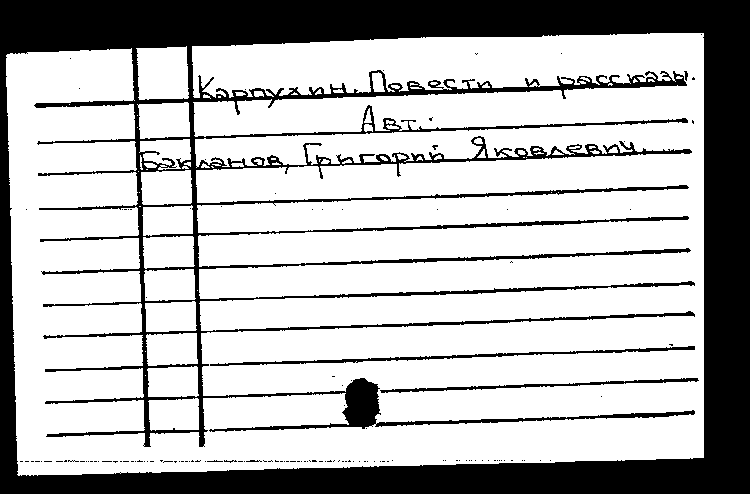 Карпухин. Повести и рассказы.
Авт.:
Бакланов, Григорий Яковлевич.